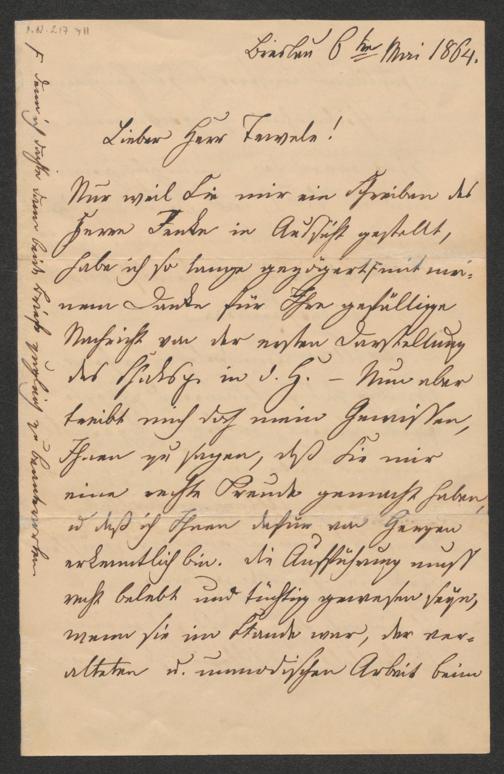 I.N. 217 411
Breslau 6ten Mai 1864.
Lieber Herr Tewele!
Nur weil Sie mir ein Schreiben des
Herrn in Aussicht gestellt,
habe ich so lange gezögert, + mit mei-
nem Danke für Ihre gefällige
Nachricht von der ersten Darstellung
des Shakesp. in d. H. – Nun aber
treibt mich doch mein Gewissen,
Ihnen zu sagen, daß Sie mir
eine rechte Freude gemacht haben,
u daß ich Ihnen dafür von Herzen
erkenntlich bin. Die Aufführung muß
recht belebt und tüchtig gewesen seyn,
wenn sie im Stande war, der ver-
alteten u. unmodischen Arbeit beim
+ denn ich dachte beide Briefe zugleich zu beantworten